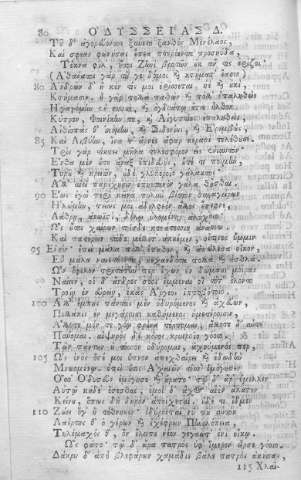 80 ΟΔΥΣΣΕΙΑΣ Δ.
Τοῦ δ' ἀγορεύοντος ξύνετο ξανθὸς Μενέλαος,
Καί σφεας φωνήσας ἔπεα πτερόεντα προσηύδα·
Τέκνα φίλ', ἤτοι Ζηνὶ βροτῶν οὐκ ἄν τις ἐρίζοι·
(Ἀθάνατοι γὰρ τοῦ γε δόμοι καὶ κτήματ' ἔασιν)
80 Ἀνδρῶν δ' ἤ κέν τίς μοι ἐρίσσεται, ἠὲ καὶ οὐκὶ,
Κτήμασιν. ἦ γὰρ πολλὰ παθὼν καὶ πόλλ' ἐπαληθεὶς
Ἠγαγόμην ἐν νηυσὶ, καὶ ὀγδοάτῳ ἔτει ἦλθον·
Κύπρον, Φοινίκην τε, καὶ Αἰγυπτίους ἐπαληθεὶς,
Αἰθίοπάς θ' ἱκόμην, καὶ Σιδονίους, καὶ Ἐρεμβούς,
85 Καὶ Λιβύην, ἵνα τ' ἄρνες ἄφαρ κεραοὶ τελέθουσι·
Τρὶς γὰρ τίκτει μῆλα τελεσφόρον εἰς ἐνιαυτόν·
Ἔνθα μὲν οὔτε ἄναξ ἐπιδευὴς, οὔτε τι ποιμὴν,
Τυροῦ καὶ κρειῶν, οὐδὲ γλυκεροῖο γάλακτος·
Ἀλλ' αἰεὶ παρέχουσιν ἐπηετανὸν γάλα θῆσθαι.
90 Ἕως ἐγὼ περὶ κεῖνα πολὺν βίοτον συναγείρων
Ἠλώμην, τείως μοι ἀδελφεὸν ἄλλος ἔπεφνε
Λάθρῃ, ἀνωϊστὶ, δόλῳ οὐλομένης ἀλόχοιο·
Ὣς οὔτοι χαίρων τοῖσδε κτεάτεσσιν ἀνάσσω.
Καὶ πατέρων τάδε μέλλετ' ἀκουέμεν, οἵτινες ὑμῖν
95 Εἰσίν· ἐπεὶ μάλα πόλλ' ἔπαθον, καὶ ἀπώλεσα οἶκον,
Εὖ μάλα ναιετάοντα, κεχανδότα πολλὰ καὶ ἐσθλά.
Ὧν ὄφελον τριτάτην περ ἔχων ἐν δώμασι μοῖραν
Ναίειν, οἱ δ' ἄνδρες σόοι ἔμμεναι οἳ τότ' ὄλοντο
Τροίῃ ἐν εὐρείῃ, ἑκὰς Ἄργεος ἱπποβότοιο·
100 Ἀλλ' ἔμπης πάντας μὲν ὀδυρόμενος καὶ ἀχεύων,
Πολλάκις ἐν μεγάροισι καθήμενος ἡμετέροισιν,
Ἄλλοτε μέν τε γόῳ φρένα τέρπομαι, ἄλλοτε δ' αὖτε
Παύομαι· αἰψηρὸς δὲ κόρος κρυεροῖο γόοιο·
Τῶν πάντων οὐ τόσσον ὀδύρομαι, ἀχνύμενός περ,
105 Ὡς ἑνὸς ὅς τέ μοι ὕπνον ἀπεχθαίρει καὶ ἐδωδὴν
Μνωομένῳ· ἐπεὶ οὔτις Ἀχαιῶν τόσσ' ἐμόγησεν
Ὅσσ' Ὀδυσεὺς ἐμόγησε καὶ ἤρατο· τῷ δ' ἄρ' ἔμελλεν
Αὐτῷ κήδε' ἔσεσθαι, ἐμοὶ δ' ἄχος αἰὲν ἄλαστον
Κείνου, ὅπως δὴ δηρὸν ἀποίχεται· οὐδέ τι ἴδμεν
110 Ζώει ὅγ' ἢ τέθνηκεν· ὀδύρονταί νύ που αὐτὸν
Λαέρτης θ' ὁ γέρων καὶ ἐχέφρων Πηνελόπεια,
Τηλέμαχός θ', ὃν ἔλειπε νέον γεγαῶτ' ἐνὶ οἴκῳ.
Ὣς φάτο· τῷ δ' ἄρα πατρὸς ὑφ' ἵμερον ὦρσε γόοιο·
Δάκρυ δ' ἀπὸ βλεφάρων χαμάδις βάλε πατρὸς ἀκούσας,
115 Χλαῖ-